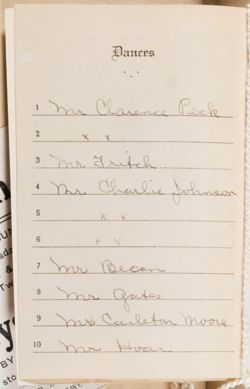 Dances
1 Mr Clarence Peck
2 x x
3 Mr Fritch
4 Mr Charlie Johnson
5 x x
6 x x
7 Mr Becon
8 Mr Gates
9 Mr Carleton Moore
10 Mr Hoar